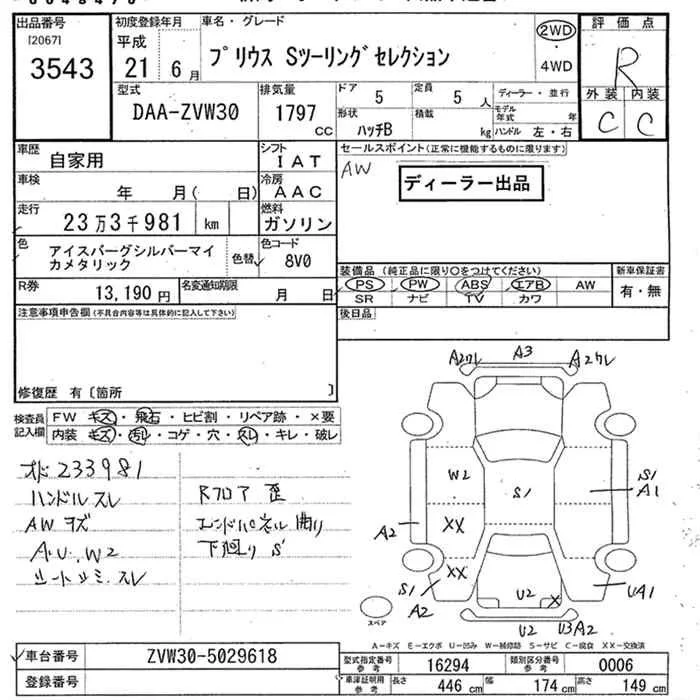 出品番号 初度登録年月 車名・グレード 評価点
[2067] 平成 プリウス Sツーリングセレクション 2WD R
3543 21 6月 4WD
型式 排気量 ドア 5 定員 5 人 ディーラー・並行 外装 内装
DAA-ZVW30 1797 cc 形状 ハッチB 積載 kg モデル年式 年 ハンドル 左・右 C C
車歴 自家用 シフト IAT セールスポイント(正常に機能するものに限ります)
車検 年 月( 日) 冷房 AAC AW ディーラー出品
走行 23万3千981 km 燃料 ガソリン
色 アイスバーグシルバーマイ 色替 色コード 8V0
カメタリック
装備品(純正品に限り○をつけてください) 新車保証書
R券 13,190円 名変通知期限 月 日 PS PW ABS エアB AW 有・無
SR ナビ TV カワ
注意事項申告欄(不具合内容等は具体的に記入して下さい) 後日品
修復歴 有〔箇所 〕
検査員記入欄 FW キズ・飛石・ヒビ割・リペア跡・×要
内装 キズ・汚レ・コゲ・穴・スレ・キレ・破レ
233981
ハンドルスレ
AWキズ
A.U.W2
シートシミ.スレ
Rフロア 歪
エンドパネル曲り
下廻り S
A2ワレ A3 A2ワレ
W2 S1 S1
A1
A2 XX
XX
S1
A2 U2 X UA1
U2 U3A2
スペア
A-キズ E-エクボ U-凹み W-補修跡 S-サビ C-腐食 XX-交換済
車台番号 ZVW30-5029618 型式指定番号 参考 16294 類別区分番号 参考 0006
登録番号 車庫証明用 参考 長さ 446 cm 幅 174 cm 高さ 149 cm